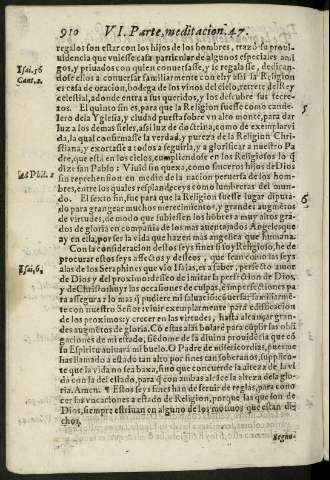 910 VI. Parte, meditacion. 47.
regalos son estar con los hijos de los hombres, trazó su proui-
uidencia que vuiesse casa particular de algunos especiales ami
gos, y priuados con quien conuersasse, y se regalasse, dedican-
Ysai. 56
Cant. 2.
dose ellos a conuersar familiarmente con el: y assi la Religion
es casa de oracion, bodega de los vinos del cielo, retrete del Rey
celestial, adonde entra a sus queridos, y los descubre sus secre-
tos. El quinto fin es, para que la Religion fuesse como cande-
5
lero de la Yglesia, y ciudad puesta sobre vn alto monte, para dar
luz a los demas fieles, assi luz de doctrina, como de exemplar vi-
da, la qual confirmasse la verdad, y pureza de la Religion Chri-
stiana, y exortasse a todos a seguirla, y a glorificar a nuestro Pa
dre, que està en los cielos, cumpliendose en los Religiosos lo q̃
Ad Phil. 2
dize san Pablo: Viuid sin quexa, como sinceros hijos de Dios
sin reprehension en medio de la nacion peruersa de los hom-
bres, entre los quales resplandeceys como lumbreras del mun-
do. El sexto fin, fue para que la Religion fuesse lugar diputa-
6
do para grangear muchos merecimientos, y grandes augmẽtos
de virtudes, de modo que subiessen los hõbres a muy altos gra-
dos de gloria en compañia de los mas auentajados Angeles que
ay en ella, por ser la vida que hazen mas angelica que humana.
Con la consideracion destos seys fines si soy Religioso, he de
procurar estos seys affectos y desseos, que sean como las seys
Ysai, 6.
alas de los Seraphines que vio Isaias, es a saber, perfecto amor
de Dios y del proximo desseo de imitar la perfection de Dios,
y de Christo huyr las occasiones de culpas, è imperfectiones pa
ra assegurar lo mas q̃ pudiere mi saluacion cõuersar familiarmẽ-
te con nuestro Señor viuir exemplarmente para edificacion
de los proximos; y crecer en las virtudes, hasta alcançar gran-
des augmẽtos de gloria. Cõ estas alas bolarè para cũplir las obli
gaciones de mi estado, fiẽdome de la diuina prouidẽcia que cõ
su Espiritu auiuarà mi buelo. O Padre de misericordias, pues me
has llamado a estado tan alto por fines tan soberanos, suplico-
te que la vida no sea baxa, sino que concuerde la alteza de la vi
da con la del estado, para q̃ con ambas alcãce la alteza de la glo
ria. Amen. ¶ Estos seys fines han de seruir de reglas, para cono
cer las vocaciones a estado de Religion, porque las que son de
Dios, siempre estriuan en alguno de los motiuos que estan di-
chos,
Segun-